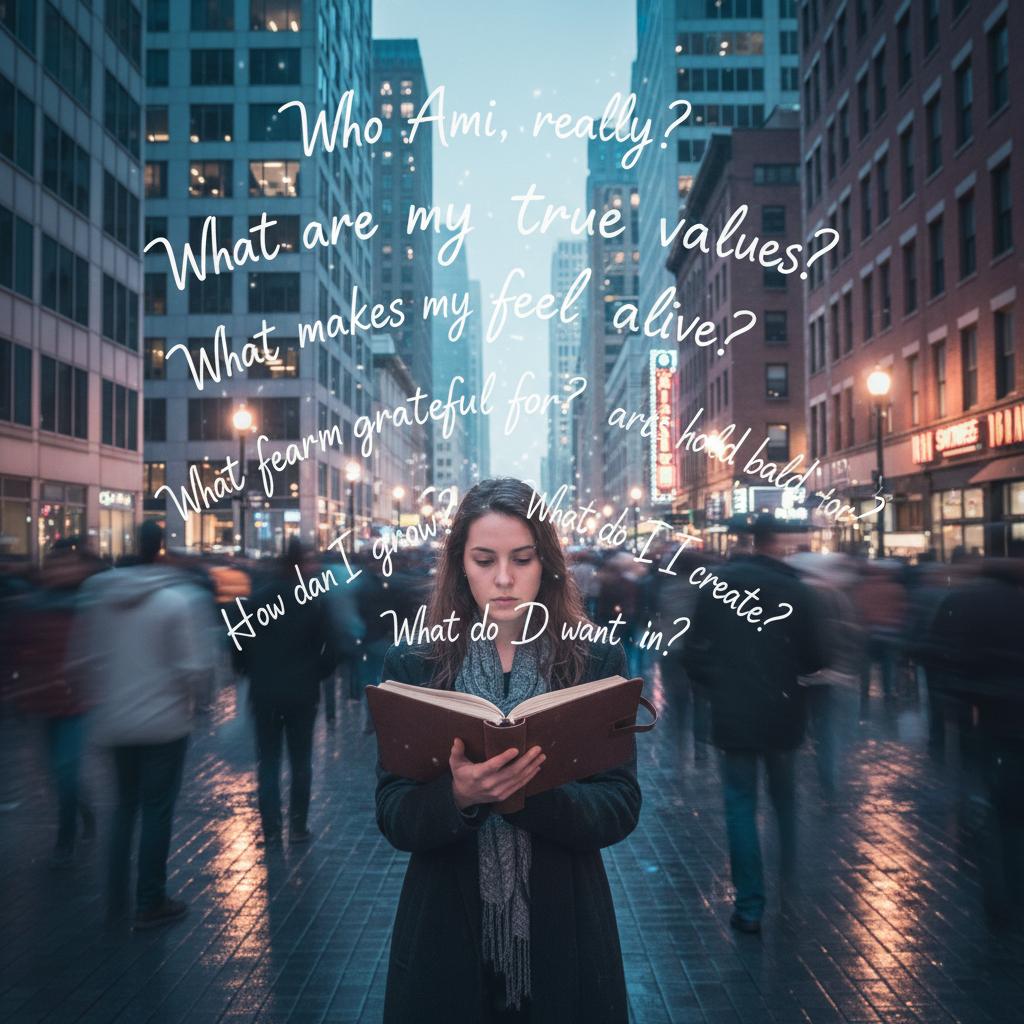 Who Ami, really?
What are my true values?
What makes my feel alive?
What fearm grateful for? are hold bald toc?
How dan I grow??
What do I I create?
What do D want in?